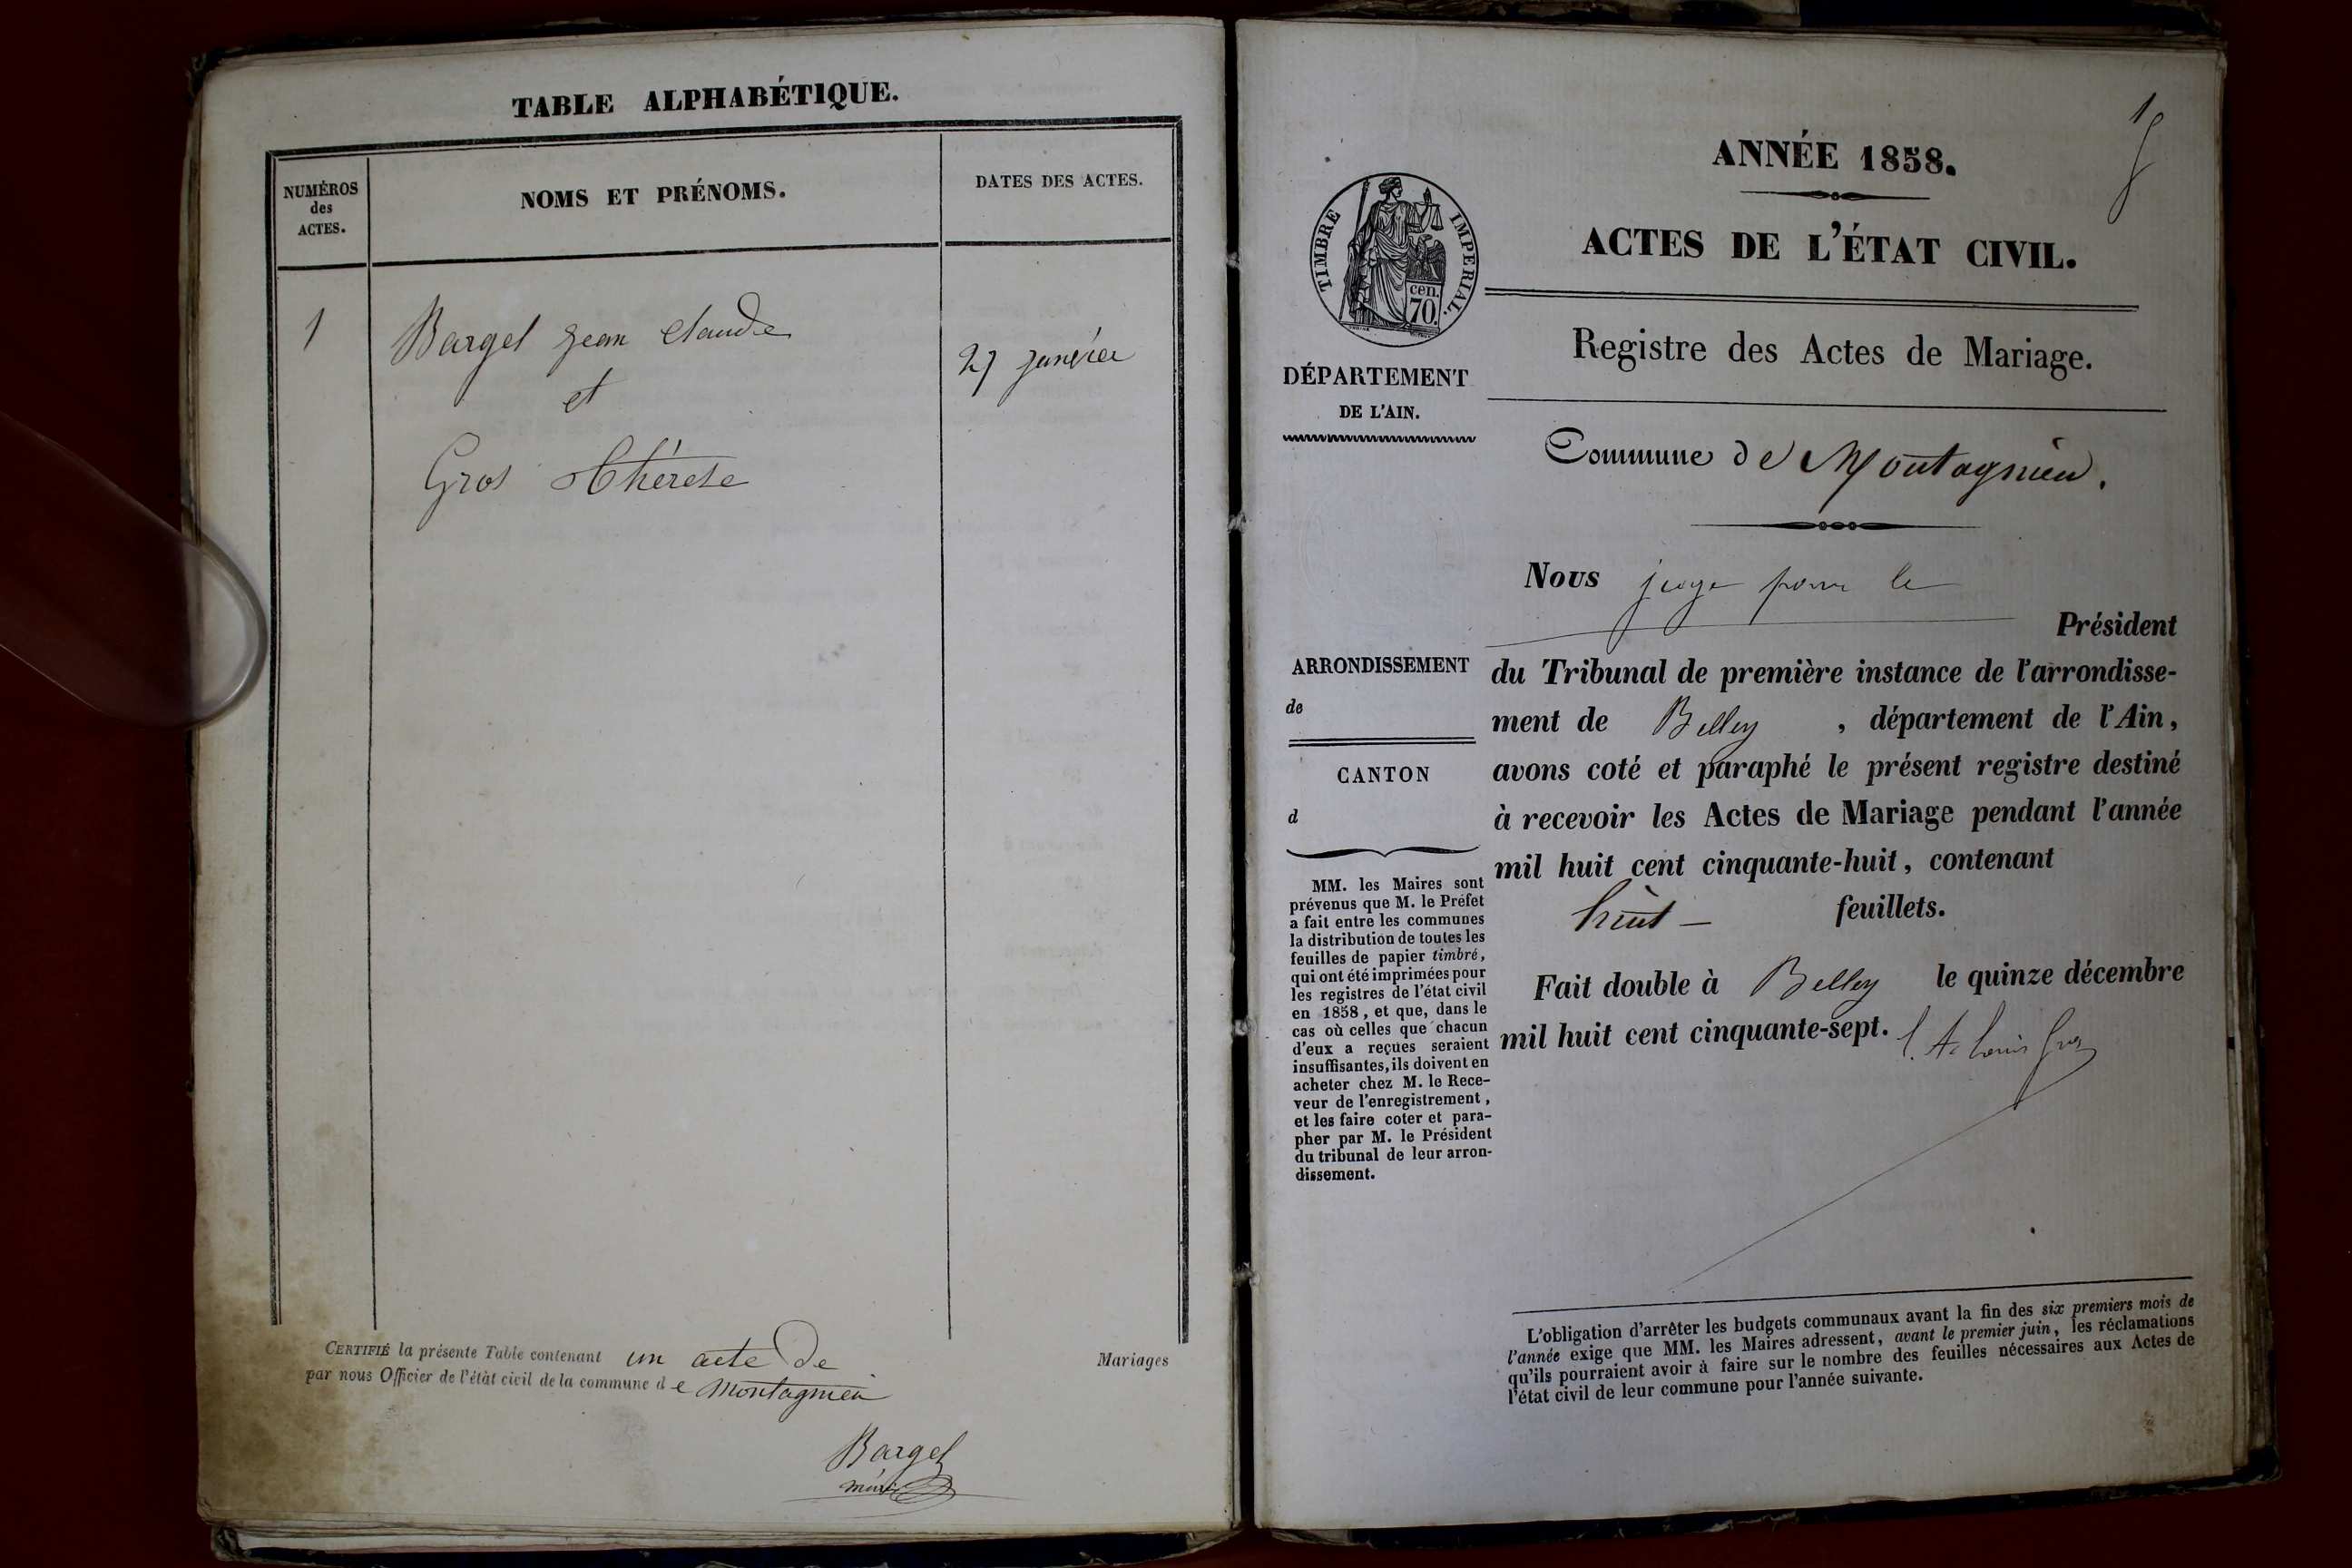 TABLE ALPHABÉTIQUE.
NUMÉROS
des
ACTES.
NOMS ET PRÉNOMS.
DATES DES ACTES.
1
Bargel Jean Claude
27 janvier
et
Gros Thérèse
CERTIFIÉ la présente Table contenant un acte de Mariages
par nous Officier de l'état civil de la commune de Montagnieu
Bargel
1
ANNÉE 1858.
ACTES DE L'ÉTAT CIVIL.
TIMBRE IMPERIAL.
cen.
70.
Registre des Actes de Mariage.
DÉPARTEMENT
DE L'AIN.
Commune de Montagnieu.
Nous juge pour le
Président
du Tribunal de première instance de l'arrondisse-
ment de Belley, département de l'Ain,
avons coté et paraphé le présent registre destiné
à recevoir les Actes de Mariage pendant l'année
mil huit cent cinquante-huit, contenant
huit — feuillets.
Fait double à Belley le quinze décembre
mil huit cent cinquante-sept.
ARRONDISSEMENT
de
CANTON
d
MM. les Maires sont
prévenus que M. le Préfet
a fait entre les communes
la distribution de toutes les
feuilles de papier timbré,
qui ont été imprimées pour
les registres de l'état civil
en 1858, et que, dans le
cas où celles que chacun
d'eux a reçues seraient
insuffisantes, ils doivent en
acheter chez M. le Rece-
veur de l'enregistrement,
et les faire coter et para-
pher par M. le Président
du tribunal de leur arron-
dissement.
L'obligation d'arrêter les budgets communaux avant la fin des six premiers mois de
l'année exige que MM. les Maires adressent, avant le premier juin, les réclamations
qu'ils pourraient avoir à faire sur le nombre des feuilles nécessaires aux Actes de
l'état civil de leur commune pour l'année suivante.